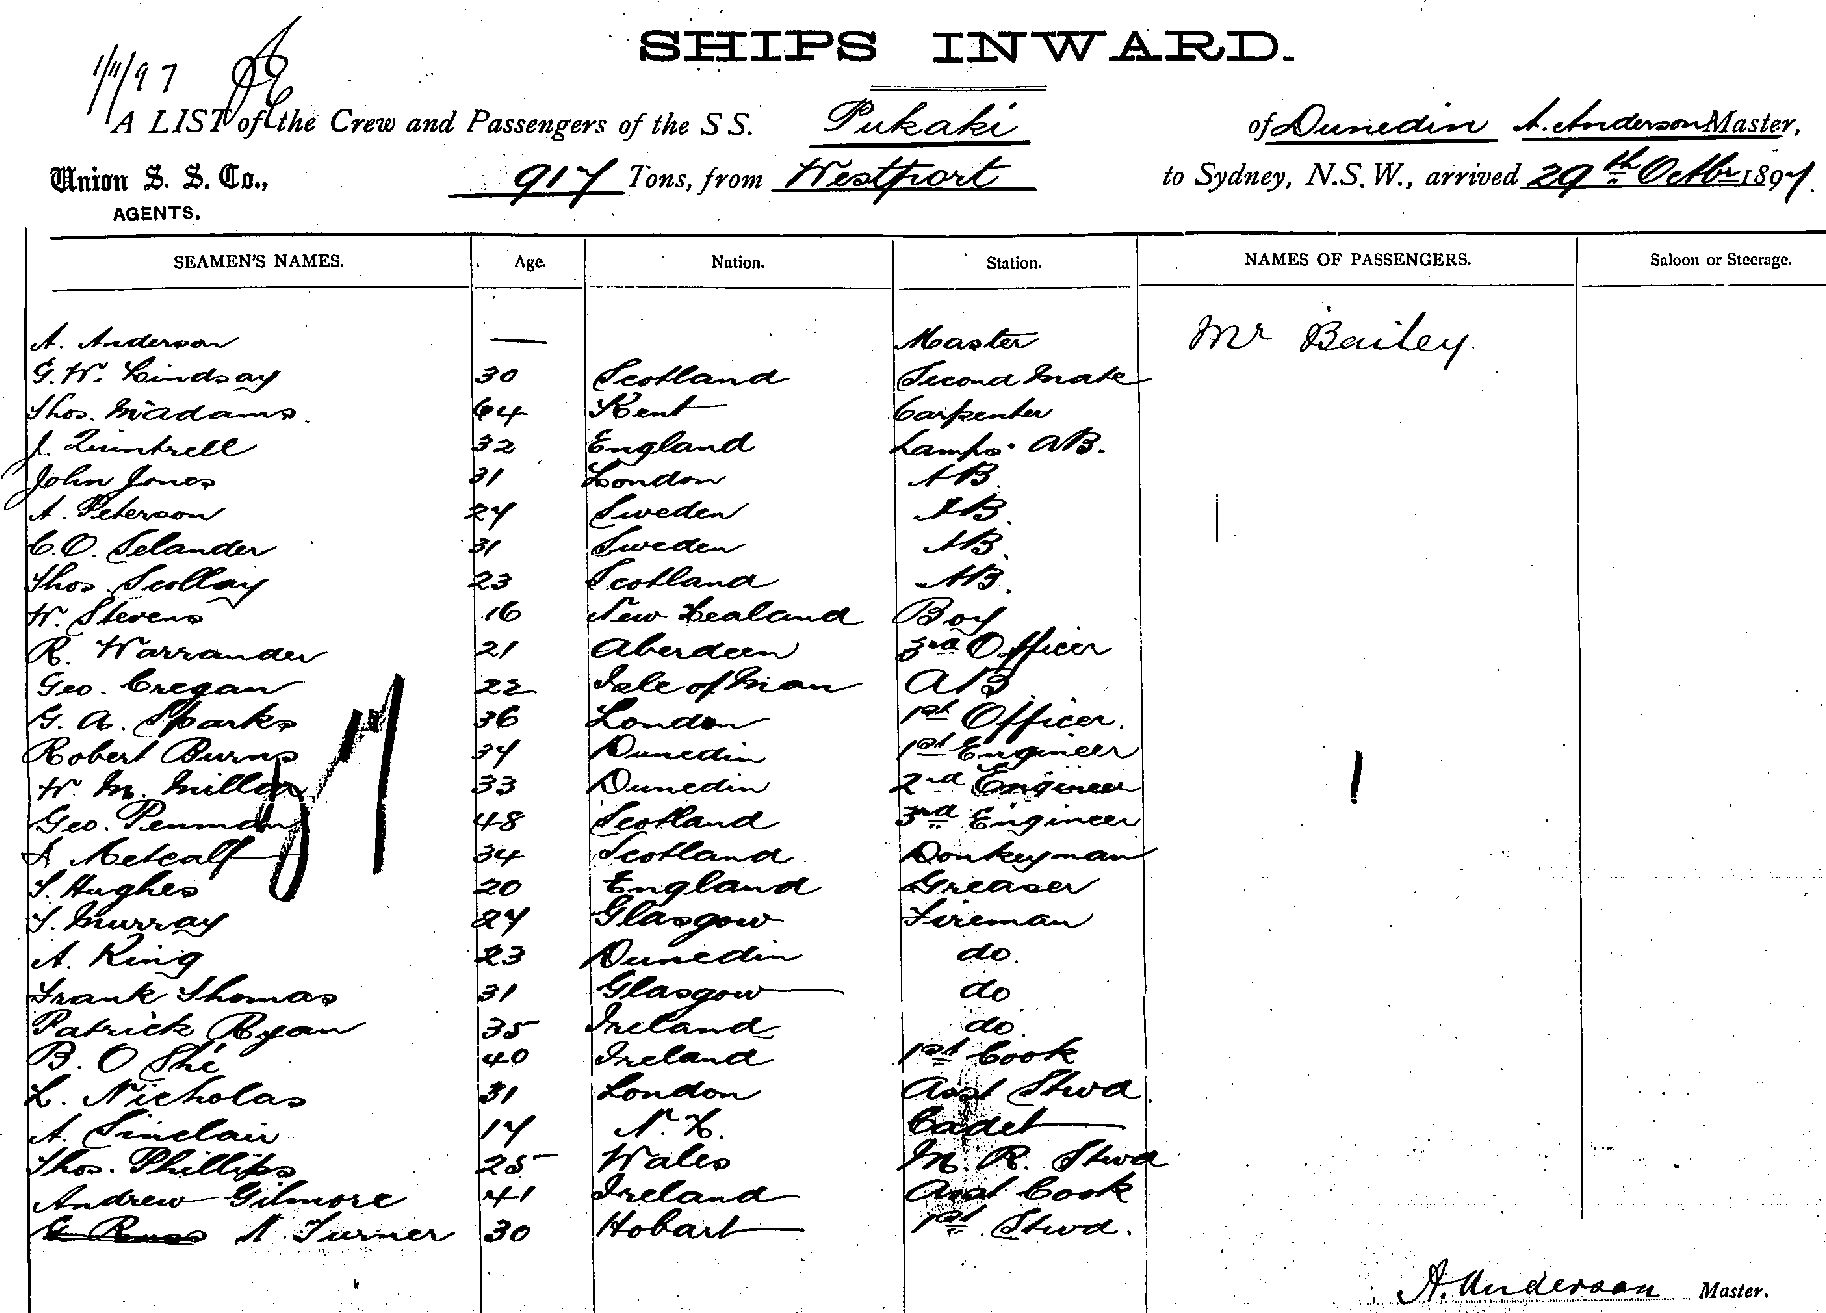 SHIPS INWARD.
1/11/97
A LIST of the Crew and Passengers of the S S. Pukaki of Dunedin A. Anderson Master,
Union S. S. Co., 917 Tons, from Westport to Sydney, N.S.W., arrived 29th Octbr 1897.
AGENTS.
SEAMEN'S NAMES. Age. Nation. Station. NAMES OF PASSENGERS. Saloon or Steerage.
A. Anderson — Master Mr Bailey.
G. W. Lindsay 30 Scotland Second Mate
Thos. McAdams 64 Kent Carpenter
J. Quintrell 32 England Lamps. AB.
John Jones 31 London AB.
A. Peterson 27 Sweden AB.
C. O. Selander 31 Sweden AB.
Thos Scollay 23 Scotland AB.
W. Stevens 16 New Zealand Boy
R. Warrander 21 Aberdeen 3rd Officer
Geo. Cregan 22 Isle of Man AB
G. A. Sparks 36 London 1st Officer.
Robert Burns 37 Dunedin 1st Engineer
W. M. Millar 33 Dunedin 2nd Engineer
Geo. Penman 48 Scotland 3rd Engineer
Metcalf 34 Scotland Donkeyman
T. Hughes 20 England Greaser
T. Murray 27 Glasgow Fireman
A. King 23 Dunedin do.
Frank Thomas 31 Glasgow do
Patrick Ryan 35 Ireland do.
B. O Shé 40 Ireland 1st Cook
L. Nicholas 31 London Asst Stwd.
A. Sinclair 17 N. Z. Cadet
Thos. Phillips 25 Wales M. R. Stwd
Andrew Gilmore 41 Ireland Asst Cook
N. Turner 30 Hobart 1st Stwd.
A. Anderson Master.